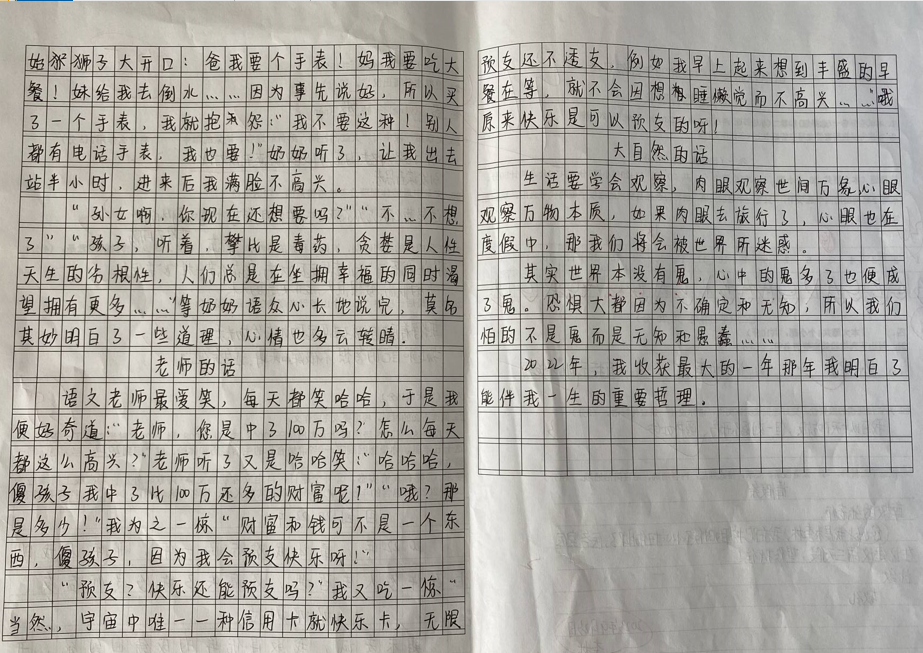 始狮子大开口：爸我要个手表！妈我要吃大
餐！妹给我去倒水……因为事先说好，所以买
了一个手表，我就抱怨：“我不要这种！别人
都有电话手表，我也要！”奶奶听了，让我出去
站半小时，进来后我满脸不高兴。
“孙女啊，你现在还想要吗？”“不…不想
了”“孩子，听着，攀比是毒药，贪婪是人性
天生的劣根性，人们总是在坐拥幸福的同时渴
望拥有更多……”等奶奶语众心长地说完，莫名
其妙明白了一些道理，心情也多云转晴。
老师的话
语文老师最爱笑，每天都笑哈哈，于是我
便好奇道：“老师，您是中了100万吗？怎么每天
都这么高兴？”老师听了又是哈哈笑：“哈哈哈，
傻孩子我中了比100万还多的财富呢！”“哦？那
是多少！”我为之一惊“财富和钱可不是一个东
西，傻孩子，因为我会预支快乐呀！”
“预支？快乐还能预支吗？”我又吃一惊“
当然，宇宙中唯一一种信用卡就快乐卡，无限
预支还不透支，例如我早上起来想到丰盛的早
餐在等，就不会因想睡懒觉而不高兴……”哦
原来快乐是可以预支的呀！
大自然的话
生活要学会观察，肉眼观察世间万象，心眼
观察万物本质，如果肉眼去旅行了，心眼也在
度假中，那我们将会被世界所迷惑。
其实世界本没有鬼，心中的鬼多了也便成
了鬼。恐惧大都因为不确定和无知，所以我们
怕的不是鬼而是无知和愚蠢……
2022年，我收获最大的一年那年我明白了
能伴我一生的重要哲理。